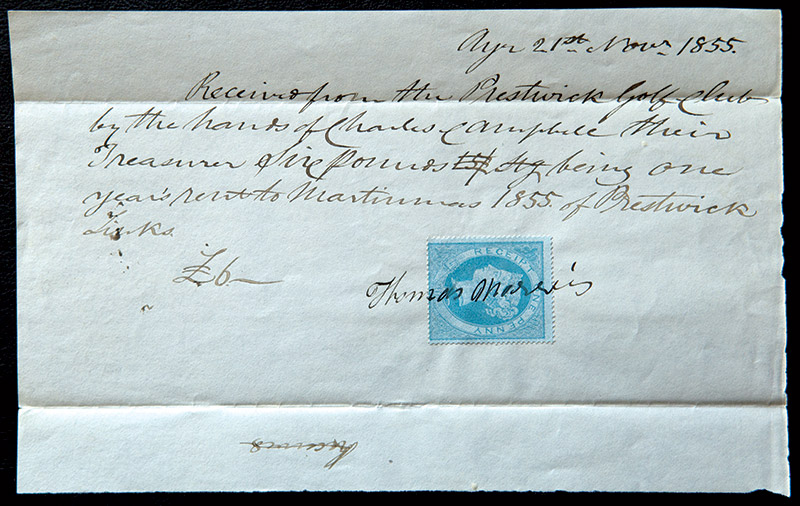 Ayr 21st Novr 1855.
Received from the Prestwick Golf Club
by the hands of Charles Campbell their
Treasurer Six Pounds Stg being one
year's rent to Martinmas 1855 of Prestwick
Links.
£6—
Thomas
RECEIPT ONE PENNY
Received